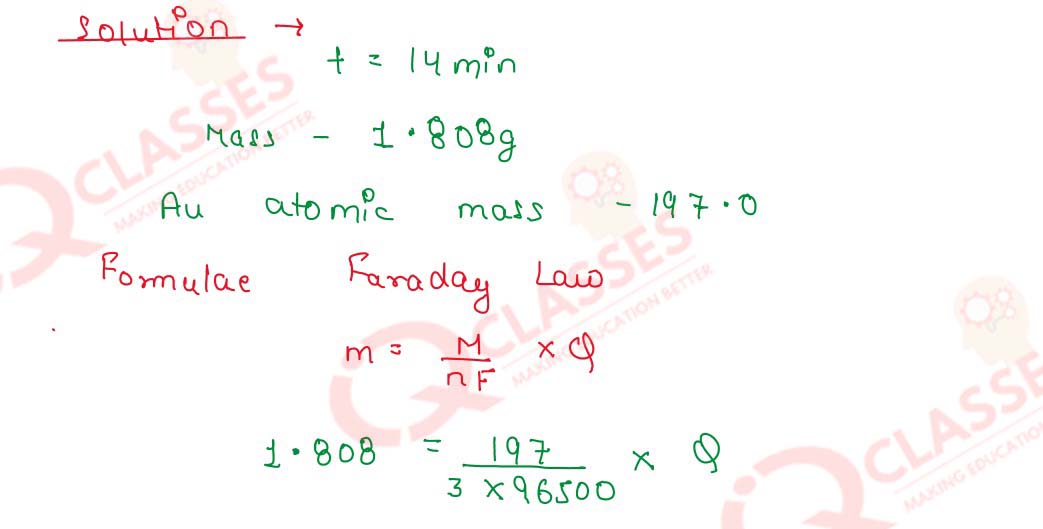 Solution →
t = 14 min
Mass - 1.808g
Au atomic mass - 197.0
Formulae Faraday Law
m = M/nF × Q
1.808 = 197/3 × 96500 × Q
CLASSES
MAKING EDUCATION BETTER
CLASSES
MAKING EDUCATION BETTER
CLASSES
MAKING EDUCATION